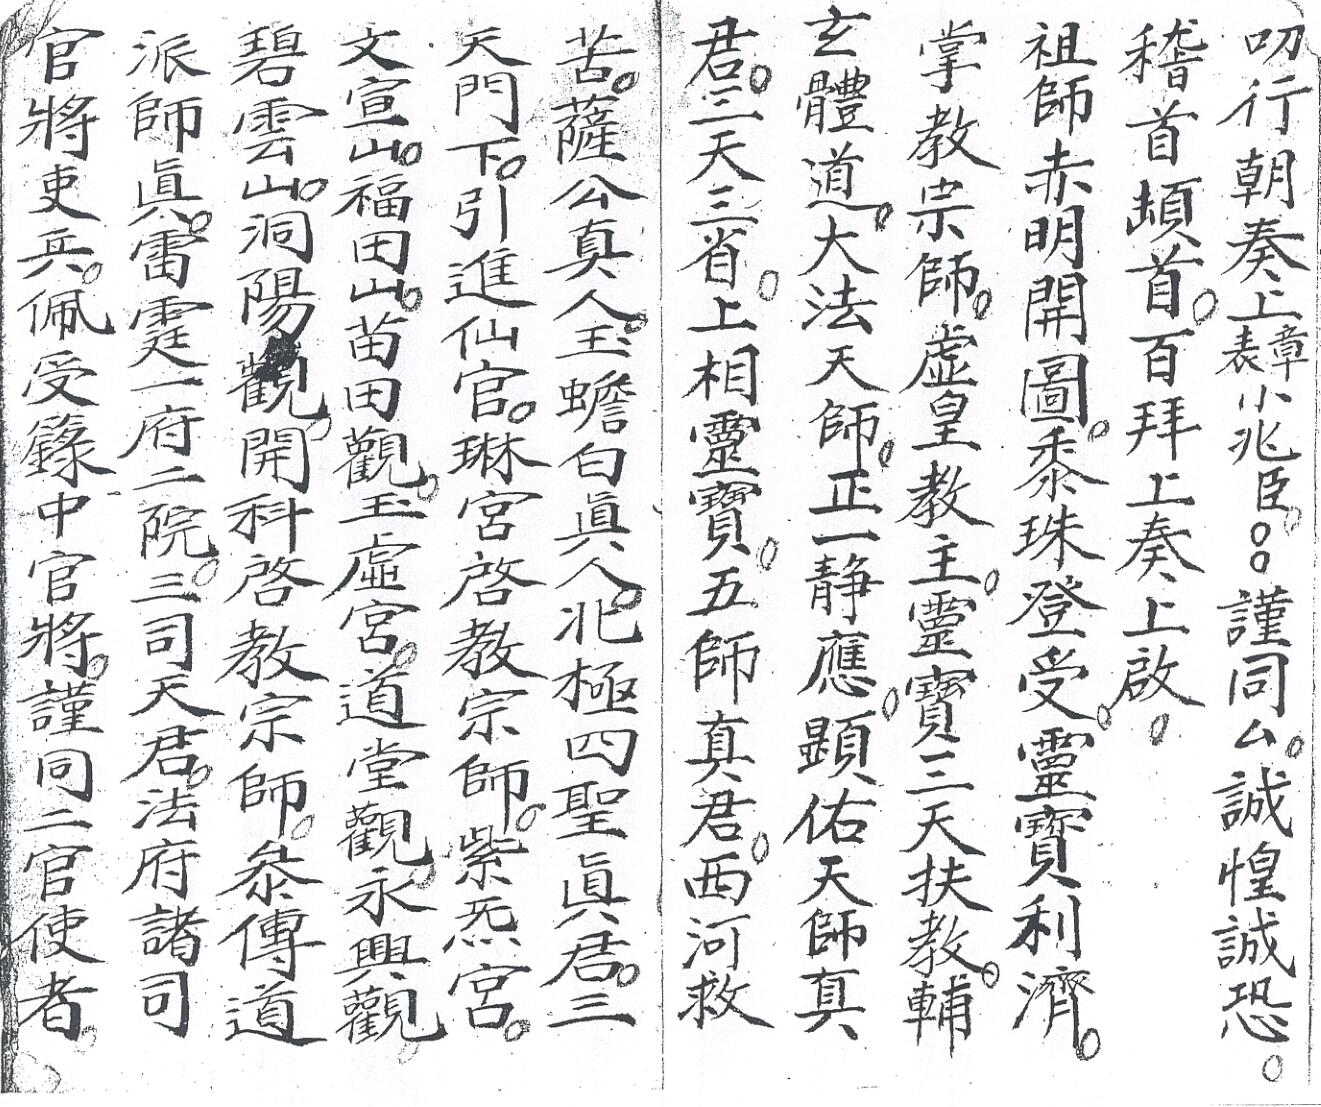 叨行朝奏上章表小兆臣。。謹同厶。誠惶誠恐。
稽首頓首。百拜上奏上啟。
祖師赤明開圖。黍珠登受。靈寶利濟。
掌教宗師。虛皇教主。靈寶三天扶教。輔
玄體道。大法天師。正一静應。顕佑天師真
君。三天三省。上相靈寶。五師真君。西河救
苦。薩公真人。玉蟾白眞人。北極四聖眞君。三
天門下。引進仙官。琳宮啓教宗師。紫炁宮。
文宣山。福田山。苗田觀。玉虛宮。道堂觀。永興觀。
碧雲山。洞陽觀。開科啓教宗師。叅傳道
派師眞。雷霆一府二院。三司天君。法府諸司
官將吏兵。佩受籙中官將。謹同二官使者。